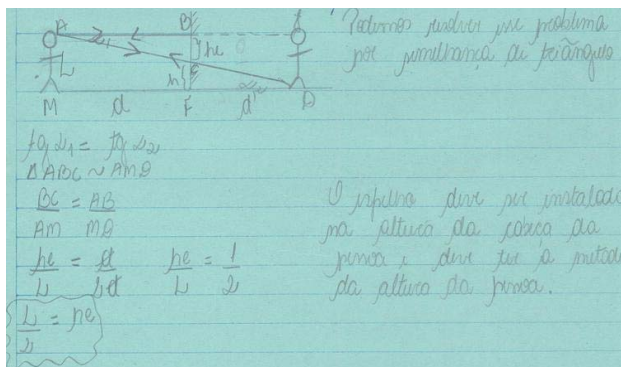 A B A
L he
C
h
M d F d' D
Podemos resolver esse problema
por semelhança de triângulo
tg α1 = tg α2
Δ ABC ~ AMD
BC = AB
AM MD
he = d he = 1
L 2d L 2
L = he
2
O espelho deve ser instalado
na altura da cabeça da
pessoa e deve ter a metade
da altura da pessoa.